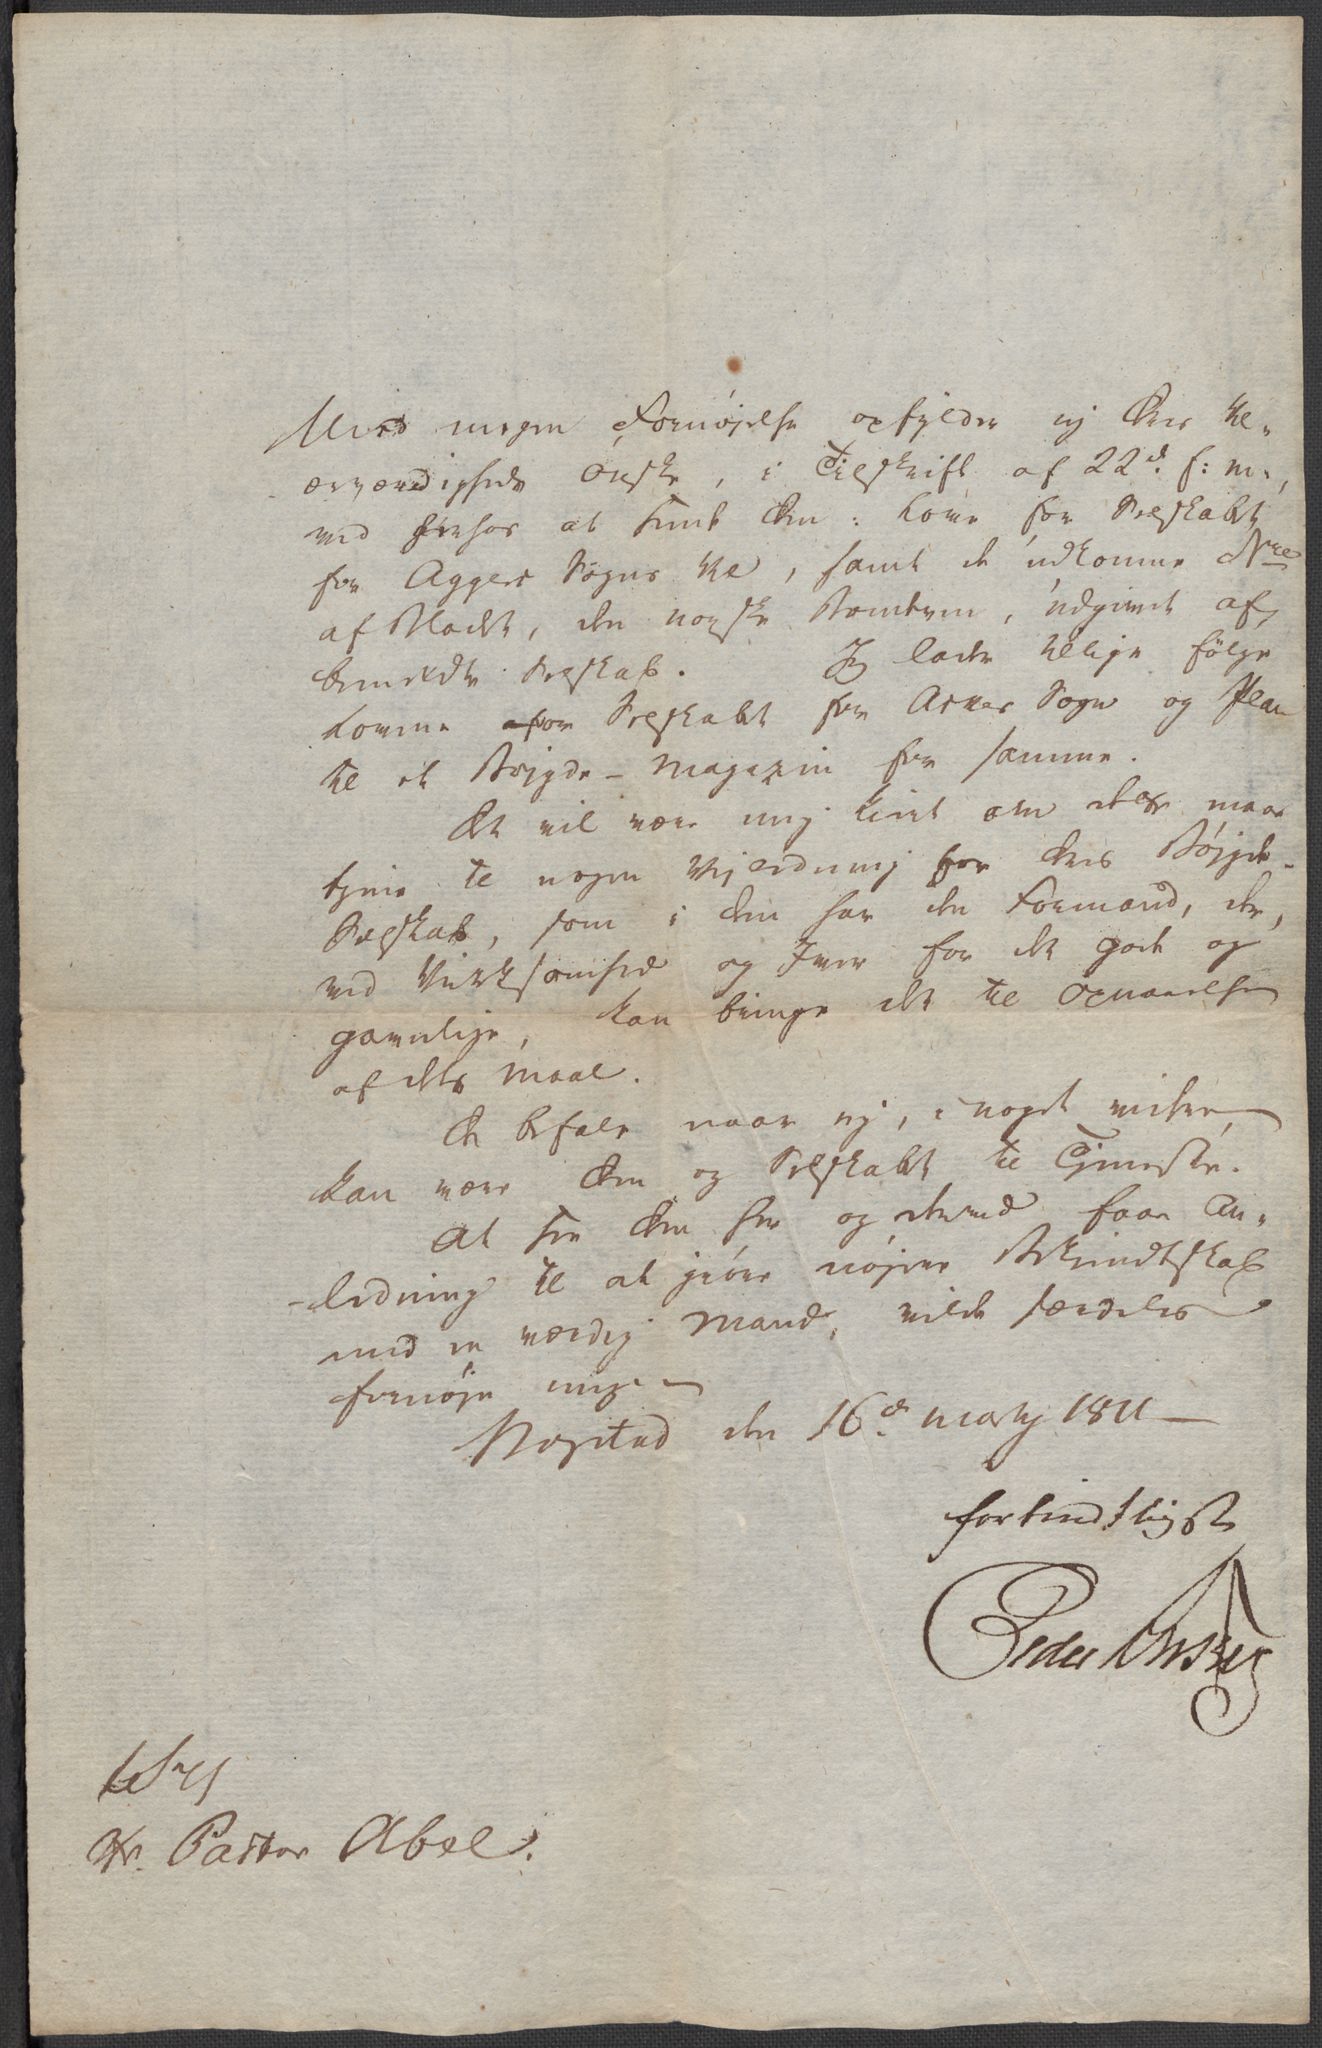 Med megen Fornøjelse opfylder jeg Deres Vel-
ærværdigheds Ønske, i Tilskrift af 22d. f: m.,
ved herhos at sende Dem: Love for Selskabet
for Aggers Sogns Vel, samt de udkomne Nre
af Bladet, den norske Bondeven, udgivet af
bemeldte Selskab. Jeg lader tillige følge
Lovene for Selskabet for Asker Sogn og Plan
til et Bøjgde-Magazin for samme.
Det vil være mig kiert om dette maae
tjene til nogen Vejledning for Deres Bøjgde-
Selskab, som i Dem har den Formand, der,
ved Virksomhed og Iver for det gode og
gavnlige, kan bringe det til Opnaaelsen
af dets Maal.
De befale naar jeg, i noget videre,
kan være Dem og Selskabet til Tjeneste.
At see Dem her og derved faae An-
ledning til at giøre nøjere Bekiendtskab
med en værdig Mand, vilde særdeles
fornøje mig
Bogstad den 16d. Martj 1811
forbindtligst
Peder Anker
Hr. Pastor Abel.